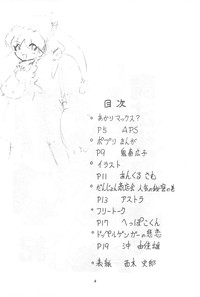 目次
◦ あかりマックス?
P5 APS
◦ ポプリまんが
P9 広子
◦ イラスト
P11 あんくるさむ
◦ だんじょん商店会 人気の秘密の巻
P13 アストラ
◦ フリートーク
P17 へっぽこくん
◦ ドッペルゲンガーの悲恋
P19 沖 由佳雄
◦ 表紙 西木 史郎